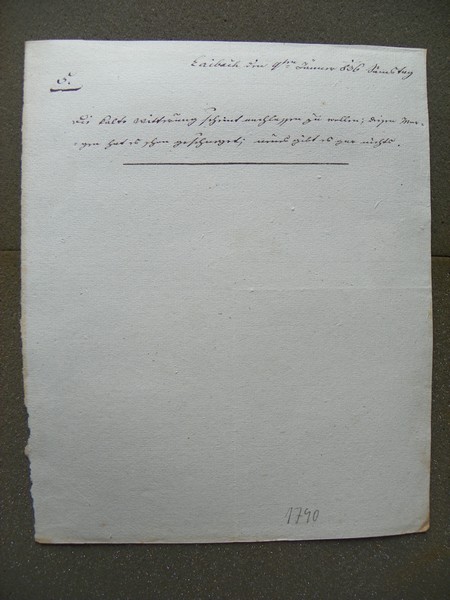 Laibach den 9ten Jänner 836 Samstag
5.
Die kalte Witterung scheint nachlassen zu wollen; diesen Mor-
gen hat es schon geschneyet; neues gibt es gar nichts.
1790